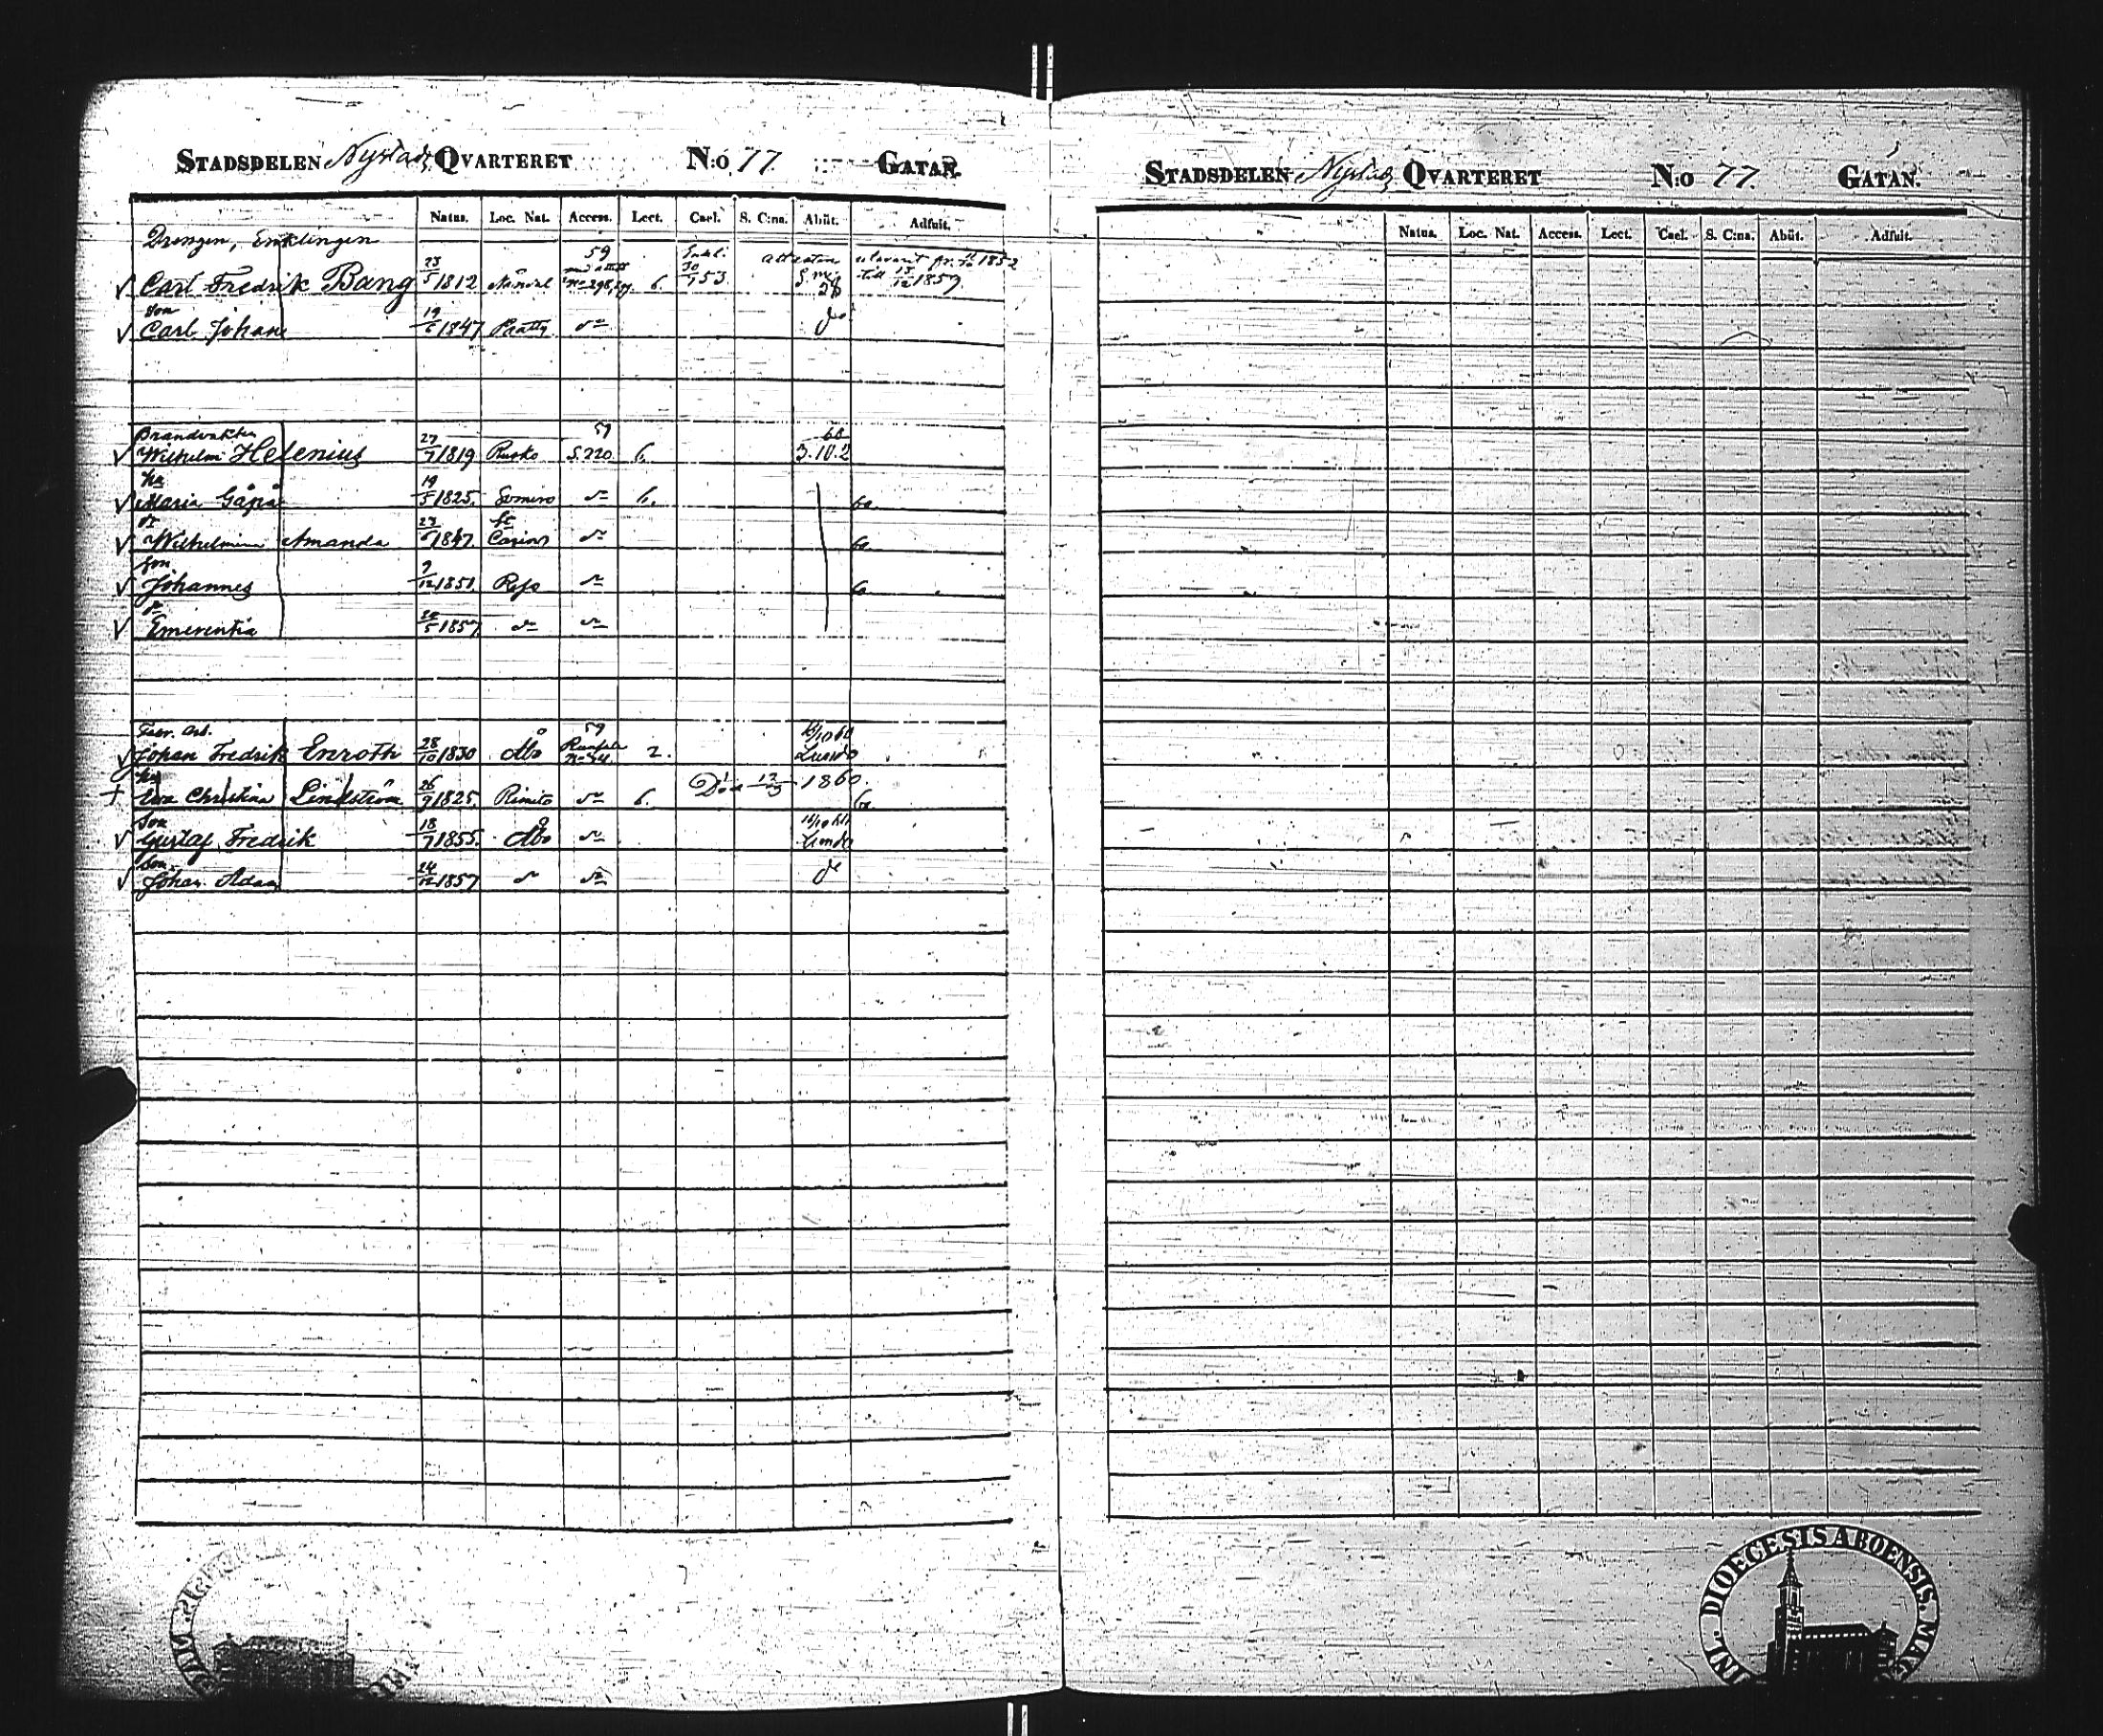 STADSDELEN Nystad, QVARTERET N:o 77. GATAN.
Natus. Loc. Nat. Access. Lect. Cael. S. C:na. Abiit. Adfuit.
Drengen, Enklingen
59 Enkl. attesten
Carl Fredrik Bang 23/5 1812 6. 30/7 53. till 13/12 1859
son
Carl Johan 19/6 1847 do do
Brandvakten 59 60
Wilhelm Helenius 27/7 1819 Rusko S.220 6. S.10.2
hu
Maria Gåpå 19/5 1825. Somero do 6. 60
dr St
Wilhelmina Amanda 1847. Carins do 60
son
Johannes 9/12 1851. Reso do 60
dr
Emerentia 1857. do do
59 16/10 60
Johan Fredrik Enroth 28/10 1830 Åbo 2. Lundo
hu
Eva Christina Lindström 26/9 1825. Rimito do 6. Död 1860. 60
Son
Gustaf Fredrik 18/7 1855. Åbo do Lundo
Son
Johan Adam 24/12 1857 do do do
STADSDELEN Nystad, QVARTERET N:o 77. GATAN.
Natus. Loc. Nat. Access. Lect. Cael. S. C:na. Abiit. Adfuit.
DIOECESIS ABOENSIS.